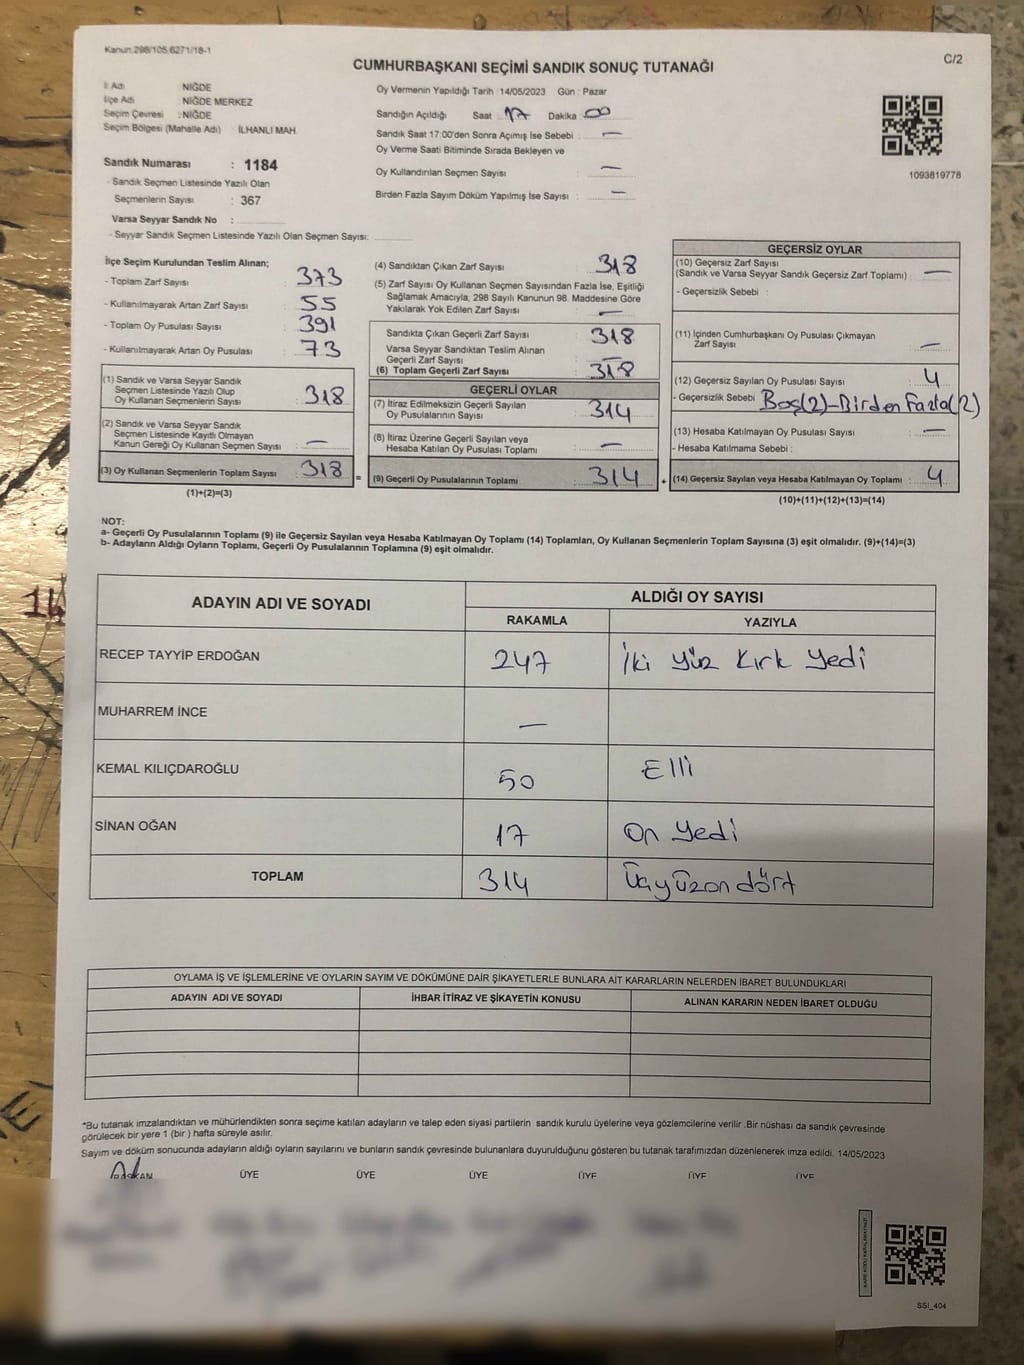 Kanun.298/105,6271/18-1
C/2
CUMHURBAŞKANI SEÇİMİ SANDIK SONUÇ TUTANAĞI
İl Adı : NİĞDE
İlçe Adı : NİĞDE MERKEZ
Seçim Çevresi : NİĞDE
Seçim Bölgesi (Mahalle Adı) : İLHANLI MAH.
Sandık Numarası : 1184
- Sandık Seçmen Listesinde Yazılı Olan
Seçmenlerin Sayısı : 367
Varsa Seyyar Sandık No :
- Seyyar Sandık Seçmen Listesinde Yazılı Olan Seçmen Sayısı:
Oy Vermenin Yapıldığı Tarih : 14/05/2023 Gün : Pazar
Sandığın Açıldığı Saat 17 Dakika 00
Sandık Saat 17:00'den Sonra Açımış İse Sebebi : —
Oy Verme Saati Bitiminde Sırada Bekleyen ve
Oy Kullandırılan Seçmen Sayısı : —
Birden Fazla Sayım Döküm Yapılmış İse Sayısı : —
1093819778
İlçe Seçim Kurulundan Teslim Alınan;
- Toplam Zarf Sayısı : 373
- Kullanılmayarak Artan Zarf Sayısı : 55
- Toplam Oy Pusulası Sayısı : 391
- Kullanılmayarak Artan Oy Pusulası : 73
(1) Sandık ve Varsa Seyyar Sandık
Seçmen Listesinde Yazılı Olup
Oy Kullanan Seçmenlerin Sayısı : 318
(2) Sandık ve Varsa Seyyar Sandık
Seçmen Listesinde Kayıtlı Olmayan
Kanun Gereği Oy Kullanan Seçmen Sayısı : —
(3) Oy Kullanan Seçmenlerin Toplam Sayısı : 318
(1)+(2)=(3)
=
(4) Sandıktan Çıkan Zarf Sayısı : 318
(5) Zarf Sayısı Oy Kullanan Seçmen Sayısından Fazla İse, Eşitliği
Sağlamak Amacıyla; 298 Sayılı Kanunun 98. Maddesine Göre
Yakılarak Yok Edilen Zarf Sayısı : —
Sandıkta Çıkan Geçerli Zarf Sayısı : 318
Varsa Seyyar Sandıktan Teslim Alınan
Geçerli Zarf Sayısı : —
(6) Toplam Geçerli Zarf Sayısı : 318
GEÇERLİ OYLAR
(7) İtiraz Edilmeksizin Geçerli Sayılan
Oy Pusulalarının Sayısı : 314
(8) İtiraz Üzerine Geçerli Sayılan veya
Hesaba Katılan Oy Pusulası Toplamı : —
(9) Geçerli Oy Pusulalarının Toplamı : 314
+
GEÇERSİZ OYLAR
(10) Geçersiz Zarf Sayısı
(Sandık ve Varsa Seyyar Sandık Geçersiz Zarf Toplamı) : —
- Geçersizlik Sebebi :
(11) İçinden Cumhurbaşkanı Oy Pusulası Çıkmayan
Zarf Sayısı : —
(12) Geçersiz Sayılan Oy Pusulası Sayısı : 4
- Geçersizlik Sebebi : Boş(2)-Birden Fazla(2)
(13) Hesaba Katılmayan Oy Pusulası Sayısı : —
- Hesaba Katılmama Sebebi :
(14) Geçersiz Sayılan veya Hesaba Katılmayan Oy Toplamı : 4
(10)+(11)+(12)+(13)=(14)
NOT:
a- Geçerli Oy Pusulalarının Toplamı (9) ile Geçersiz Sayılan veya Hesaba Katılmayan Oy Toplamı (14) Toplamları, Oy Kullanan Seçmenlerin Toplam Sayısına (3) eşit olmalıdır. (9)+(14)=(3)
b- Adayların Aldığı Oyların Toplamı, Geçerli Oy Pusulalarının Toplamına (9) eşit olmalıdır.
ADAYIN ADI VE SOYADI ALDIĞI OY SAYISI
RAKAMLA YAZIYLA
RECEP TAYYİP ERDOĞAN 247 İki yüz kırk yedi
MUHARREM İNCE —
KEMAL KILIÇDAROĞLU 50 Elli
SİNAN OĞAN 17 On yedi
TOPLAM 314 Üçyüzondört
OYLAMA İŞ VE İŞLEMLERİNE VE OYLARIN SAYIM VE DÖKÜMÜNE DAİR ŞİKAYETLERLE BUNLARA AİT KARARLARIN NELERDEN İBARET BULUNDUKLARI
ADAYIN ADI VE SOYADI İHBAR İTİRAZ VE ŞİKAYETİN KONUSU ALINAN KARARIN NEDEN İBARET OLDUĞU
*Bu tutanak imzalandıktan ve mühürlendikten sonra seçime katılan adayların ve talep eden siyasi partilerin sandık kurulu üyelerine veya gözlemcilerine verilir .Bir nüshası da sandık çevresinde
görülecek bir yere 1 (bir ) hafta süreyle asılır.
Sayım ve döküm sonucunda adayların aldığı oyların sayılarını ve bunların sandık çevresinde bulunanlara duyurulduğunu gösteren bu tutanak tarafımızdan düzenlenerek imza edildi. 14/05/2023
BAŞKAN ÜYE ÜYE ÜYE ÜYE ÜYE ÜYE
SSI_404
14